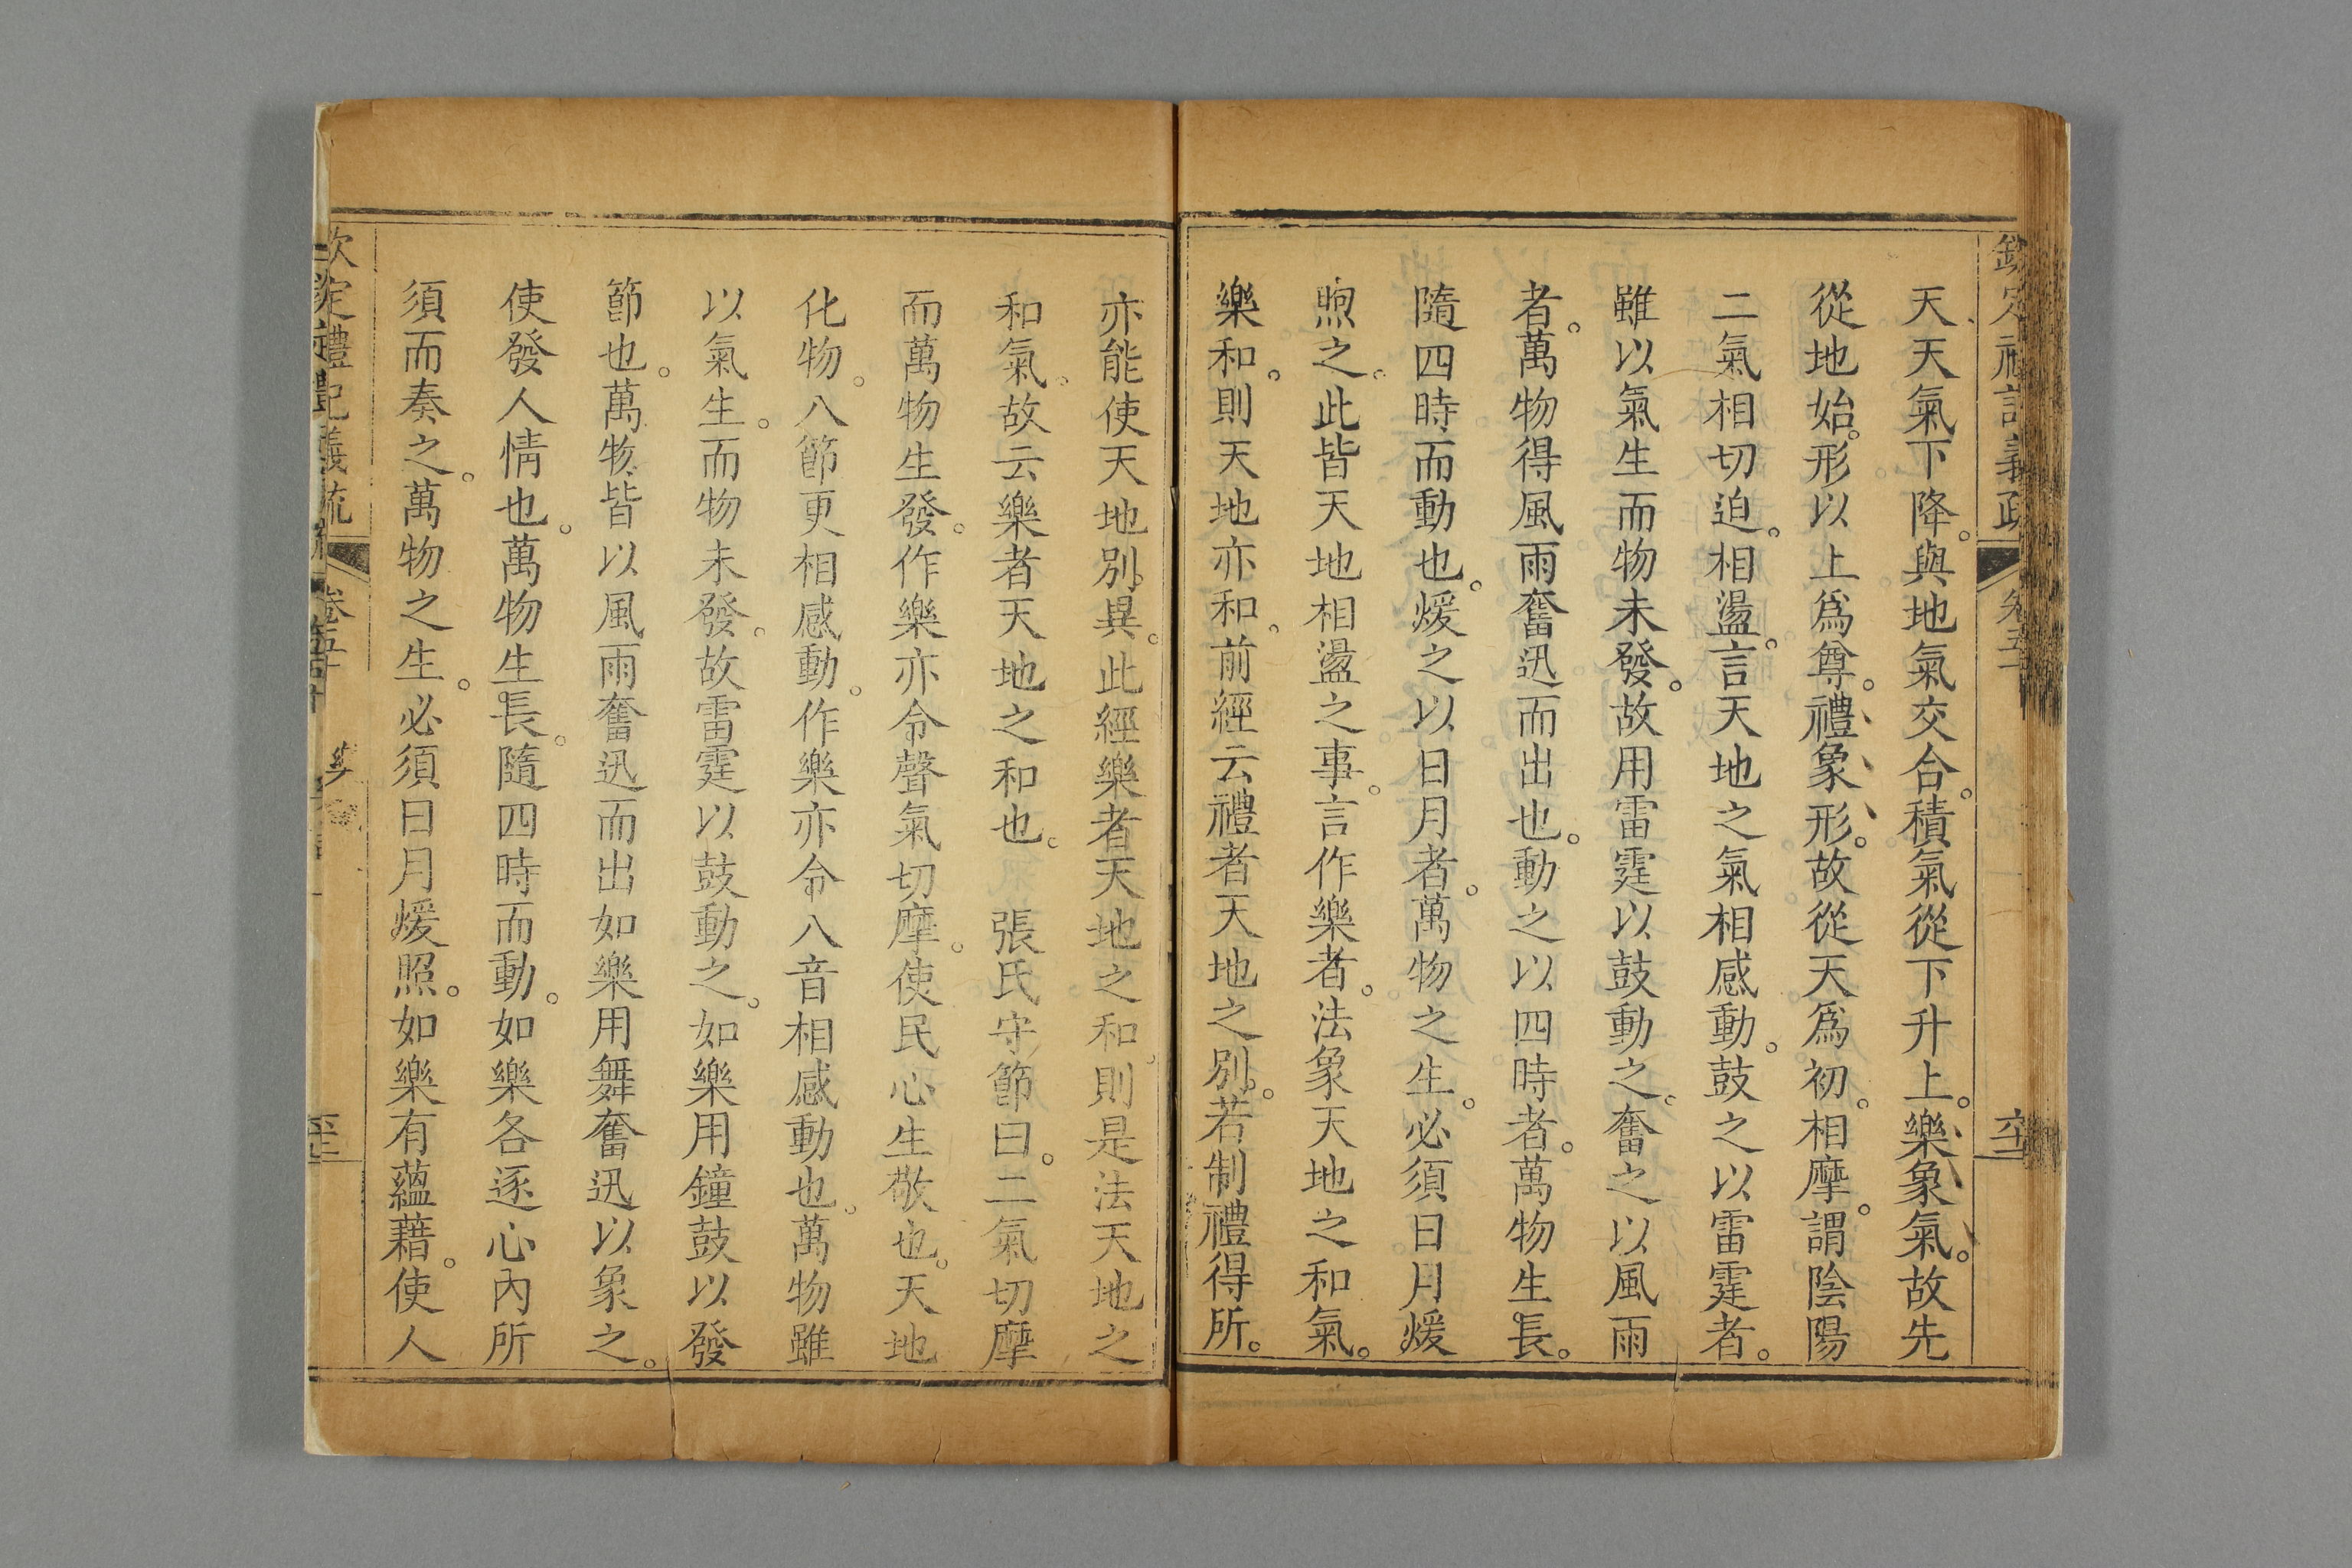 欽定禮記義疏 卷五十
天天氣下降。與地氣交合。積氣從下升上。樂象氣。故先
從地始。形以上爲尊。禮象形。故從天爲初。相摩。謂陰陽
二氣相切迫。相盪。言天地之氣相感動。鼓之以雷霆者。
雖以氣生而物未發。故用雷霆以鼓動之。奮之以風雨
者。萬物得風雨奮迅而出也。動之以四時者。萬物生長。
隨四時而動也。煖之以日月者。萬物之生。必須日月煖
煦之。此皆天地相盪之事。言作樂者。法象天地之和氣。
樂和。則天地亦和。前經云禮者天地之別。若制禮得所。
亦能使天地別異。此經樂者天地之和。則是法天地之
和氣。故云樂者天地之和也。 張氏守節曰。二氣切摩
而萬物生發。作樂亦令聲氣切摩。使民心生敬也。天地
化物。八節更相感動。作樂亦令八音相感動也。萬物雖
以氣生。而物未發。故雷霆以鼓動之。如樂用鐘鼓以發
節也。萬物皆以風雨奮迅而出如樂用舞奮迅以象之。
使發人情也。萬物生長。隨四時而動。如樂各逐心內所
須而奏之。萬物之生。必須日月煖照。如樂有蘊藉。使人
欽定禮記義疏 卷五十